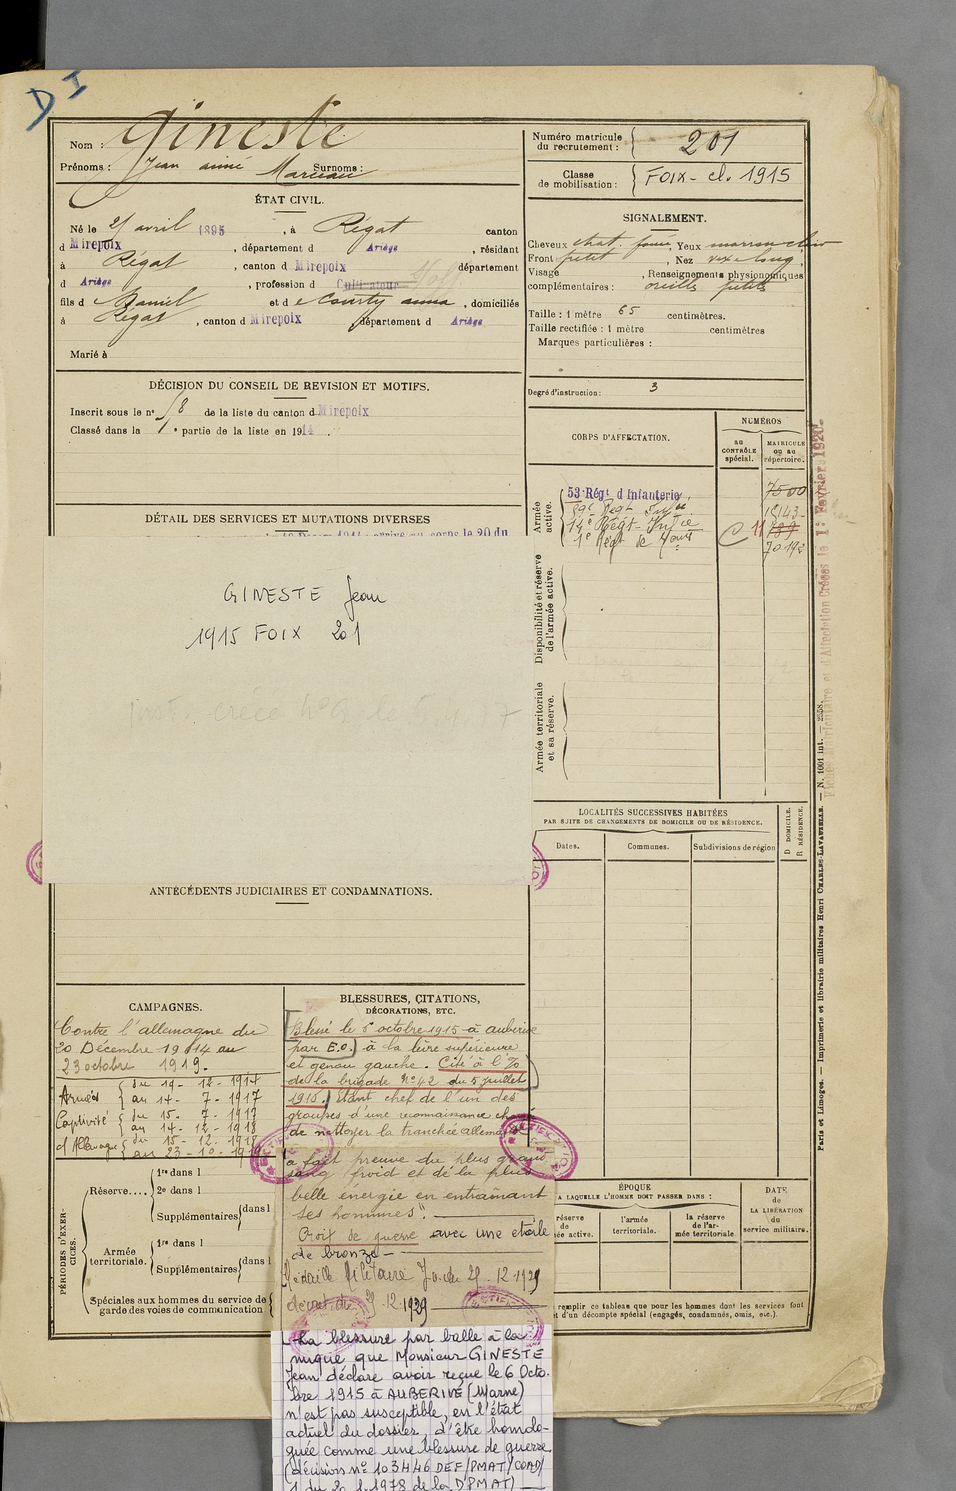 D I
Nom : Gineste
Prénoms : Jean aimé Marceau Surnoms :
Numéro matricule du recrutement : 201
Classe de mobilisation : FOIX - cl. 1915
ÉTAT CIVIL.
Né le avril 1895, à Régat canton
d Mirepoix, département d Ariège, résidant
à Régat, canton d Mirepoix département
d Ariège, profession d Cultivateur
fils d e Daniel et d e Courty anna, domiciliés
à Régat, canton d Mirepoix département d Ariège
Marié à
SIGNALEMENT.
Cheveux chat. foncé, Yeux marron clair
Front petit, Nez long,
Visage , Renseignements physionomiques
complémentaires : oreilles petites
Taille : 1 mètre 65 centimètres.
Taille rectifiée : 1 mètre centimètres
Marques particulières :
Degré d'instruction : 3
DÉCISION DU CONSEIL DE REVISION ET MOTIFS.
Inscrit sous le n° 58 de la liste du canton d Mirepoix
Classé dans la 1e partie de la liste en 1914.
DÉTAIL DES SERVICES ET MUTATIONS DIVERSES
CORPS D'AFFECTATION.
NUMÉROS
au CONTRÔLE spécial.
MATRICULE ou au répertoire.
Armée active.
53 Régt d'Infanterie 7500
59e Regt Infie
14e Régt - Infie
Disponibilité et réserve de l'armée active.
Armée territoriale et sa réserve.
GINESTE Jean
1915 FOIX 201
LOCALITÉS SUCCESSIVES HABITÉES
PAR SUITE DE CHANGEMENTS DE DOMICILE OU DE RÉSIDENCE.
Dates.
Communes.
Subdivisions de région
D DOMICILE.
R RÉSIDENCE.
ANTÉCÉDENTS JUDICIAIRES ET CONDAMNATIONS.
CAMPAGNES.
Contre l'allemagne du
20 Décembre 1914 au
23 octobre 1919.
Armées du 19 - 12 - 1914
au 14 - 7 - 1917
Captivité du 15 - 7 - 1917
au 14 - 12 - 1918
d'Allemagne du 15 - 12 - 1918
au 23 - 10 - 1919
BLESSURES, CITATIONS,
DÉCORATIONS, ETC.
Blessé le 6 octobre 1915 à auberive
par E.O. à la lèvre supérieure
et genou gauche. Cité à l'%
de la brigade N° 42 du 5 juillet
1916. Etant chef de l'un des
groupes d'une reconnaissance chargé
de nettoyer la tranchée allemande
a fait preuve du plus grand
sang froid et de la plus
belle énergie en entraînant
ses hommes".
Croix de guerre avec une etoile
de bronze -
Médaille Militaire J.o. du 29.12.1929
décret du 12.1929
La blessure par balle à la
nuque que Monsieur GINESTE
Jean déclare avoir reçue le 6 Octo-
bre 1915 à AUBERIVE (Marne)
n'est pas susceptible, en l'état
actuel du dossier, d'être homolo-
guée comme une blessure de guerre
(décision n° 103446 DEF/PMAT/COAD/
1978 de la DPMAT)
PÉRIODES D'EXERCICES.
Réserve....
1re dans l
2e dans l
Supplémentaires dans l
Armée territoriale.
1re dans l
Supplémentaires dans l
Spéciales aux hommes du service de
garde des voies de communication
ÉPOQUE
A LAQUELLE L'HOMME DOIT PASSER DANS :
l'armée territoriale.
la réserve de l'armée territoriale.
DATE de LA LIBÉRATION du service militaire.
remplir ce tableau que pour les hommes dont les services font
d'un décompte spécial (engagés, condamnés, omis, etc.).
Paris et Limoges. — Imprimerie et librairie militaires Henri CHARLES-LAVAUZELLE. — N. 1001 int. — 2358.